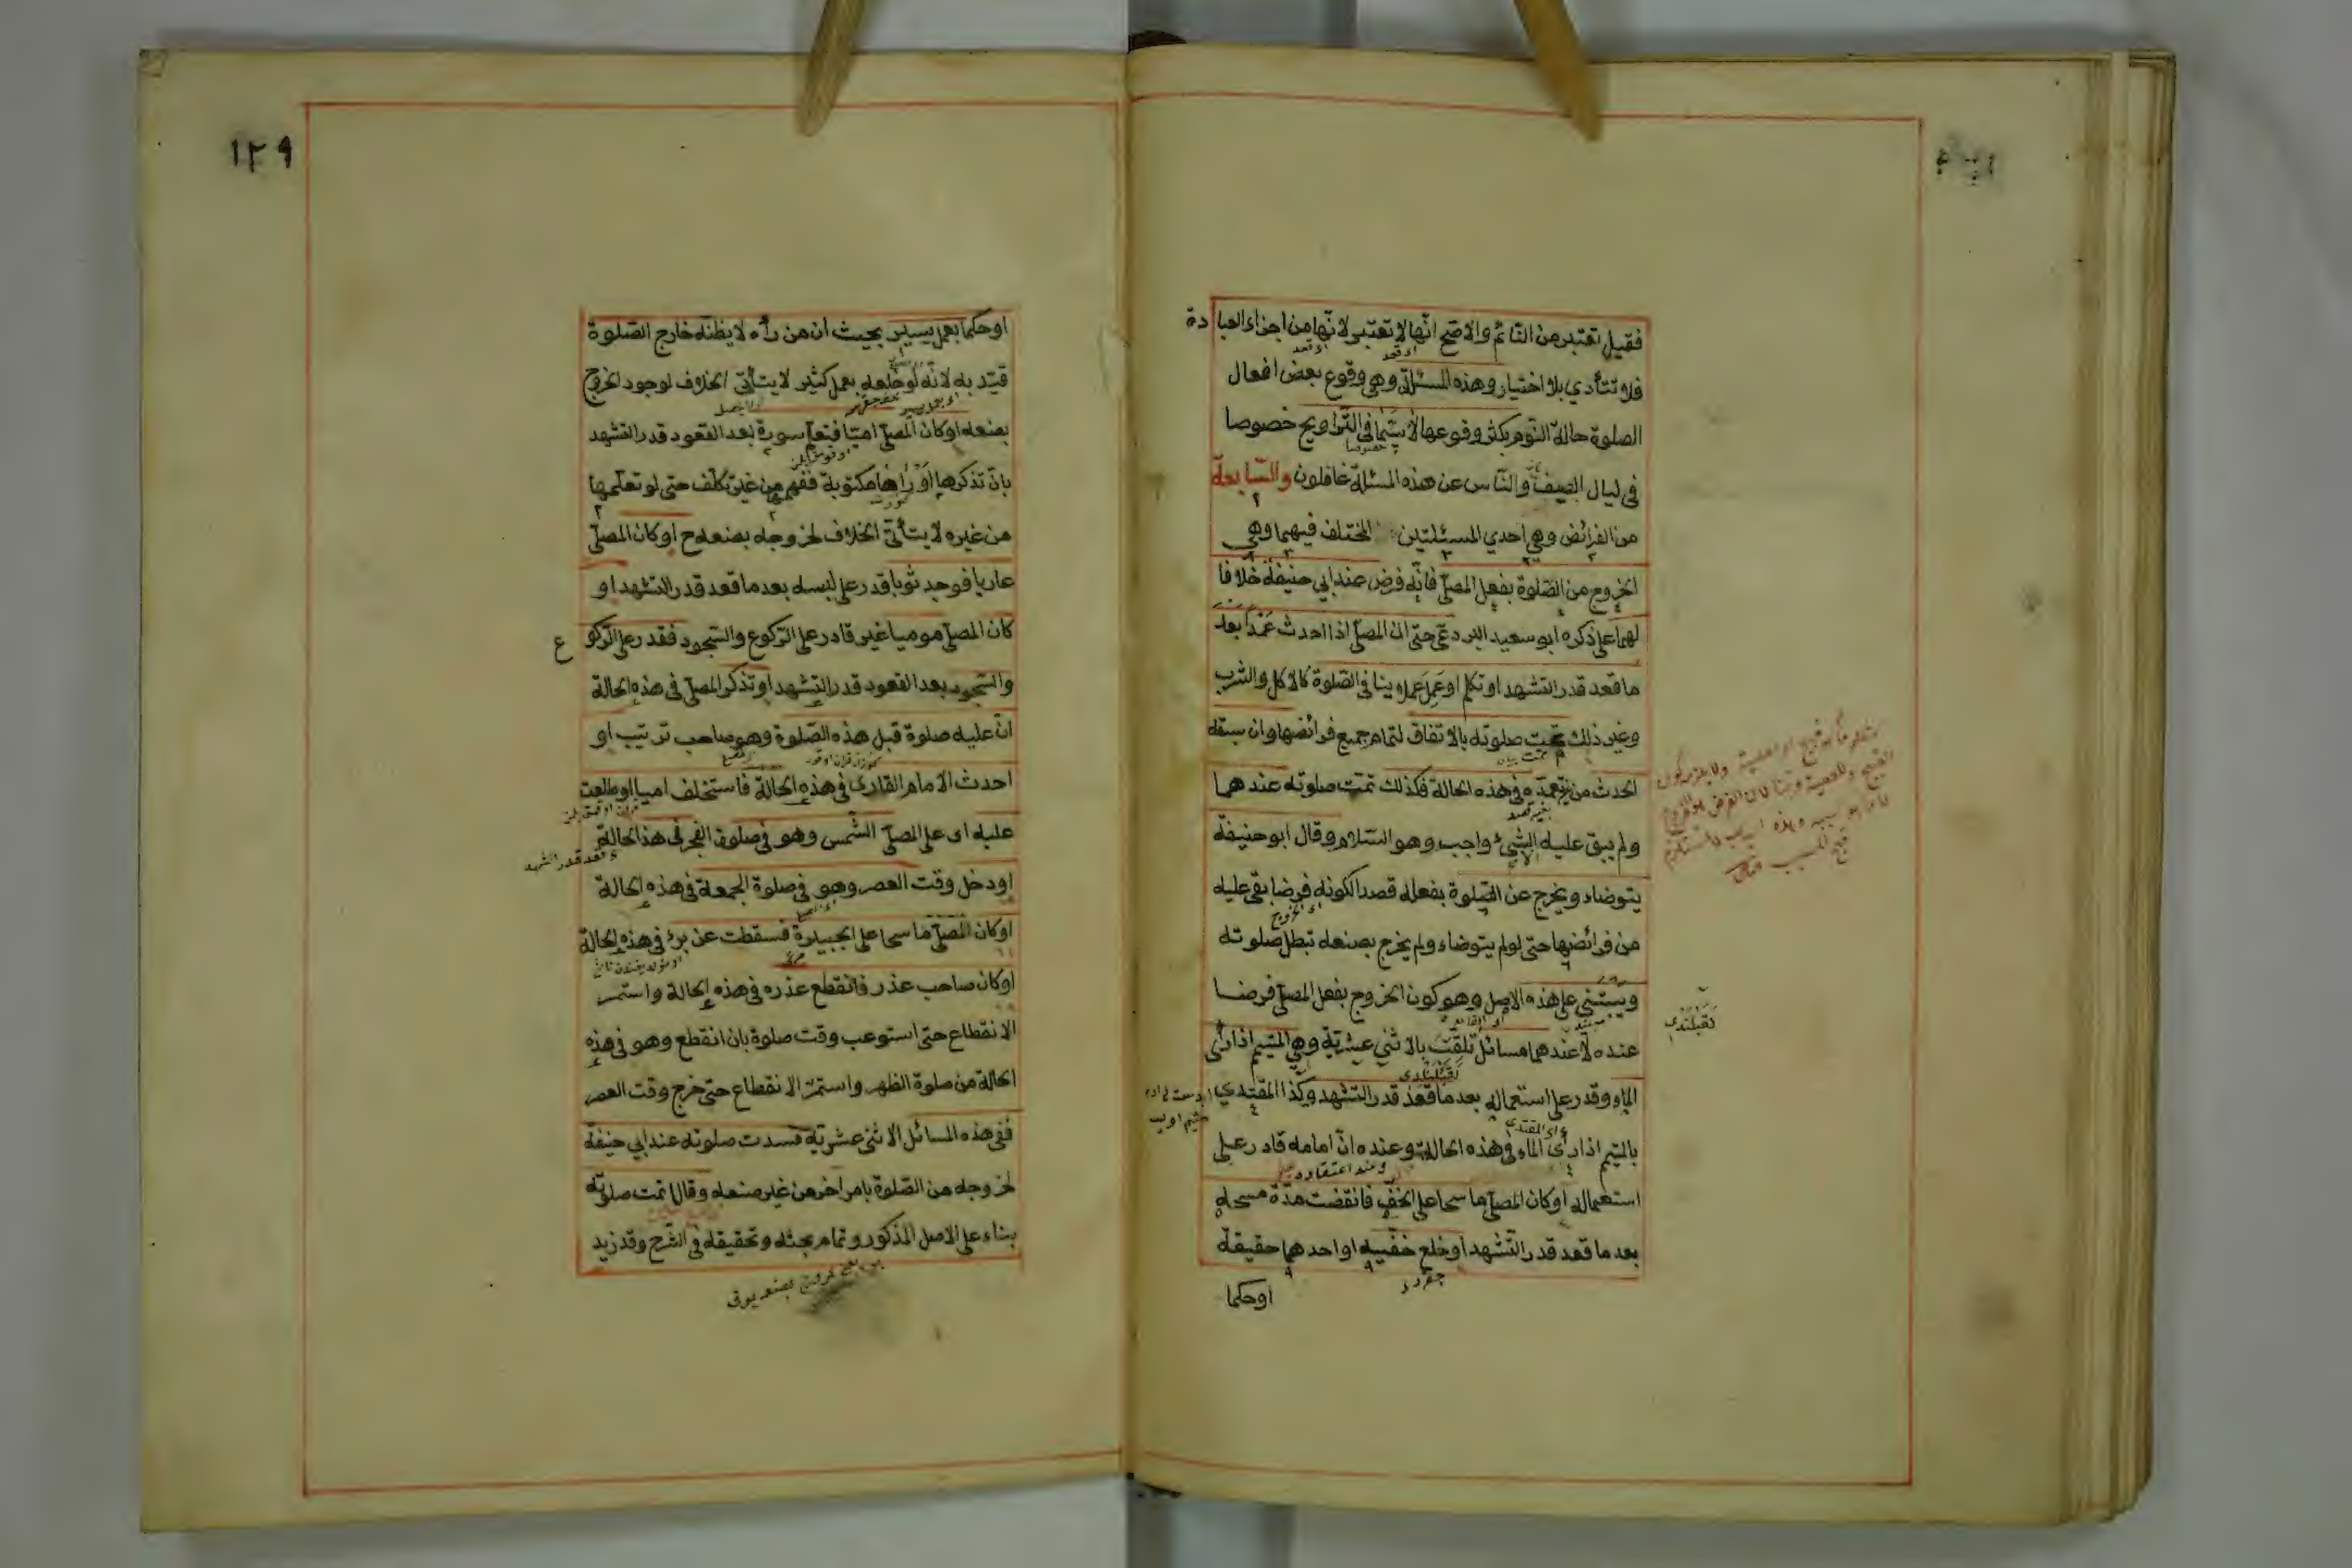 فقيل تعتبر من النائم والاصح انها لا تعتبر لانها من اجزاء العبادة
فلا تتأدي بلا اختيار وهذه المسئلة وهي وقوع بعض افعال
الصلوة حالة النوم يكثر وقوعها لا سيما في التراويح خصوصا
في ليال الصيف والناس عن هذه المسئلة غافلون والسابعة
من الفرائض وهي احدي المسئلتين المختلف فيهما وهي
الخروج من الصلوة بفعل المصلّي فانه فرض عند ابي حنيفة خلافا
لهما على ذكره ابو سعيد البردعي حتى ان المصلّي اذا احدث عمدا بعد
ما قعد قدر التشهد او تكلم او عمل عملا ينافي الصلوة كالاكل والشرب
وغير ذلك تمت صلوته بالاتفاق لتمام جميع فرائضها وان سبقه
الحدث من غير تعمده في هذه الحالة فكذلك تمت صلوته عندهما
ولم يبق عليه الشئ واجب وهو السلام وقال ابو حنيفة
يتوضاء ويخرج عن الصلوة بفعله قصدا لكونه فرضا بقي عليه
من فرائضها حتى لو لم يتوضاء ولم يخرج بصنعه تبطل صلوته
ويبتني على هذه الاصل وهو كون الخروج بفعل المصلّي فرضا
عنده لا عندهما مسائل تلقبت بالاثني عشرية وهي المتيمم اذا رأى
الماء وقدر على استعماله بعد ما قعد قدر التشهد وكذا المقتدي
بالمتيمم اذا رأى الماء في هذه الحالة وعنده انّ امامه قادر على
استعماله او كان المصلّي ماسحا على الخف فانقضت مدة مسحه
بعد ما قعد قدر التشهد او خلع خفيه او احدهما حقيقة
او حكما
١٢٩
او حكما بعمل يسير بحيث ان من رأه لا يظنه خارج الصلوة
قيّد به لانه لو خلعه بعمل كثير لا يتأتى الخلاف لوجود الخروج
بصنعه او كان المصلّي اميا فتعلم سورة بعد القعود قدر التشهد
بان تذكرها او رأها مكتوبة ففهم من غير تكلف حتى لو تعلمها
من غيره لا يتأتى الخلاف لخروجه بصنعه ح او كان المصلّي
عاريا فوجد ثوبا قدر على لبسه بعد ما قعد قدر التشهد او
كان المصلّي موميا غير قادر على الركوع والسجود فقدر على الركوع
والسجود بعد القعود قدر التشهد او تذكر المصلّي في هذه الحالة
انّ عليه صلوة قبل هذه الصلوة وهو صاحب ترتيب او
احدث الامام القارى في هذه الحالة فاستخلف اميا او طلعت
عليه اى على المصلّي الشمس وهو في صلوة الفجر في هذه الحالة
او دخل وقت العصر وهو في صلوة الجمعة في هذه الحالة
او كان المصلّي ماسحا على الجبيرة فسقطت عن برء في هذه الحالة
او كان صاحب عذر فانقطع عذره في هذه الحالة واستمر
الانقطاع حتى استوعب وقت صلوة بان انقطع وهو في هذه
الحالة من صلوة الظهر واستمرّ الانقطاع حتى خرج وقت العصر
ففي هذه المسائل الاثني عشرية فسدت صلوته عند ابي حنيفة
لخروجه من الصلوة بامر اخر من غير صنعه وقالا تمت صلوته
بناء على الاصل المذكور وتمام بحثه وتحقيقه في الشرح وقد زيد